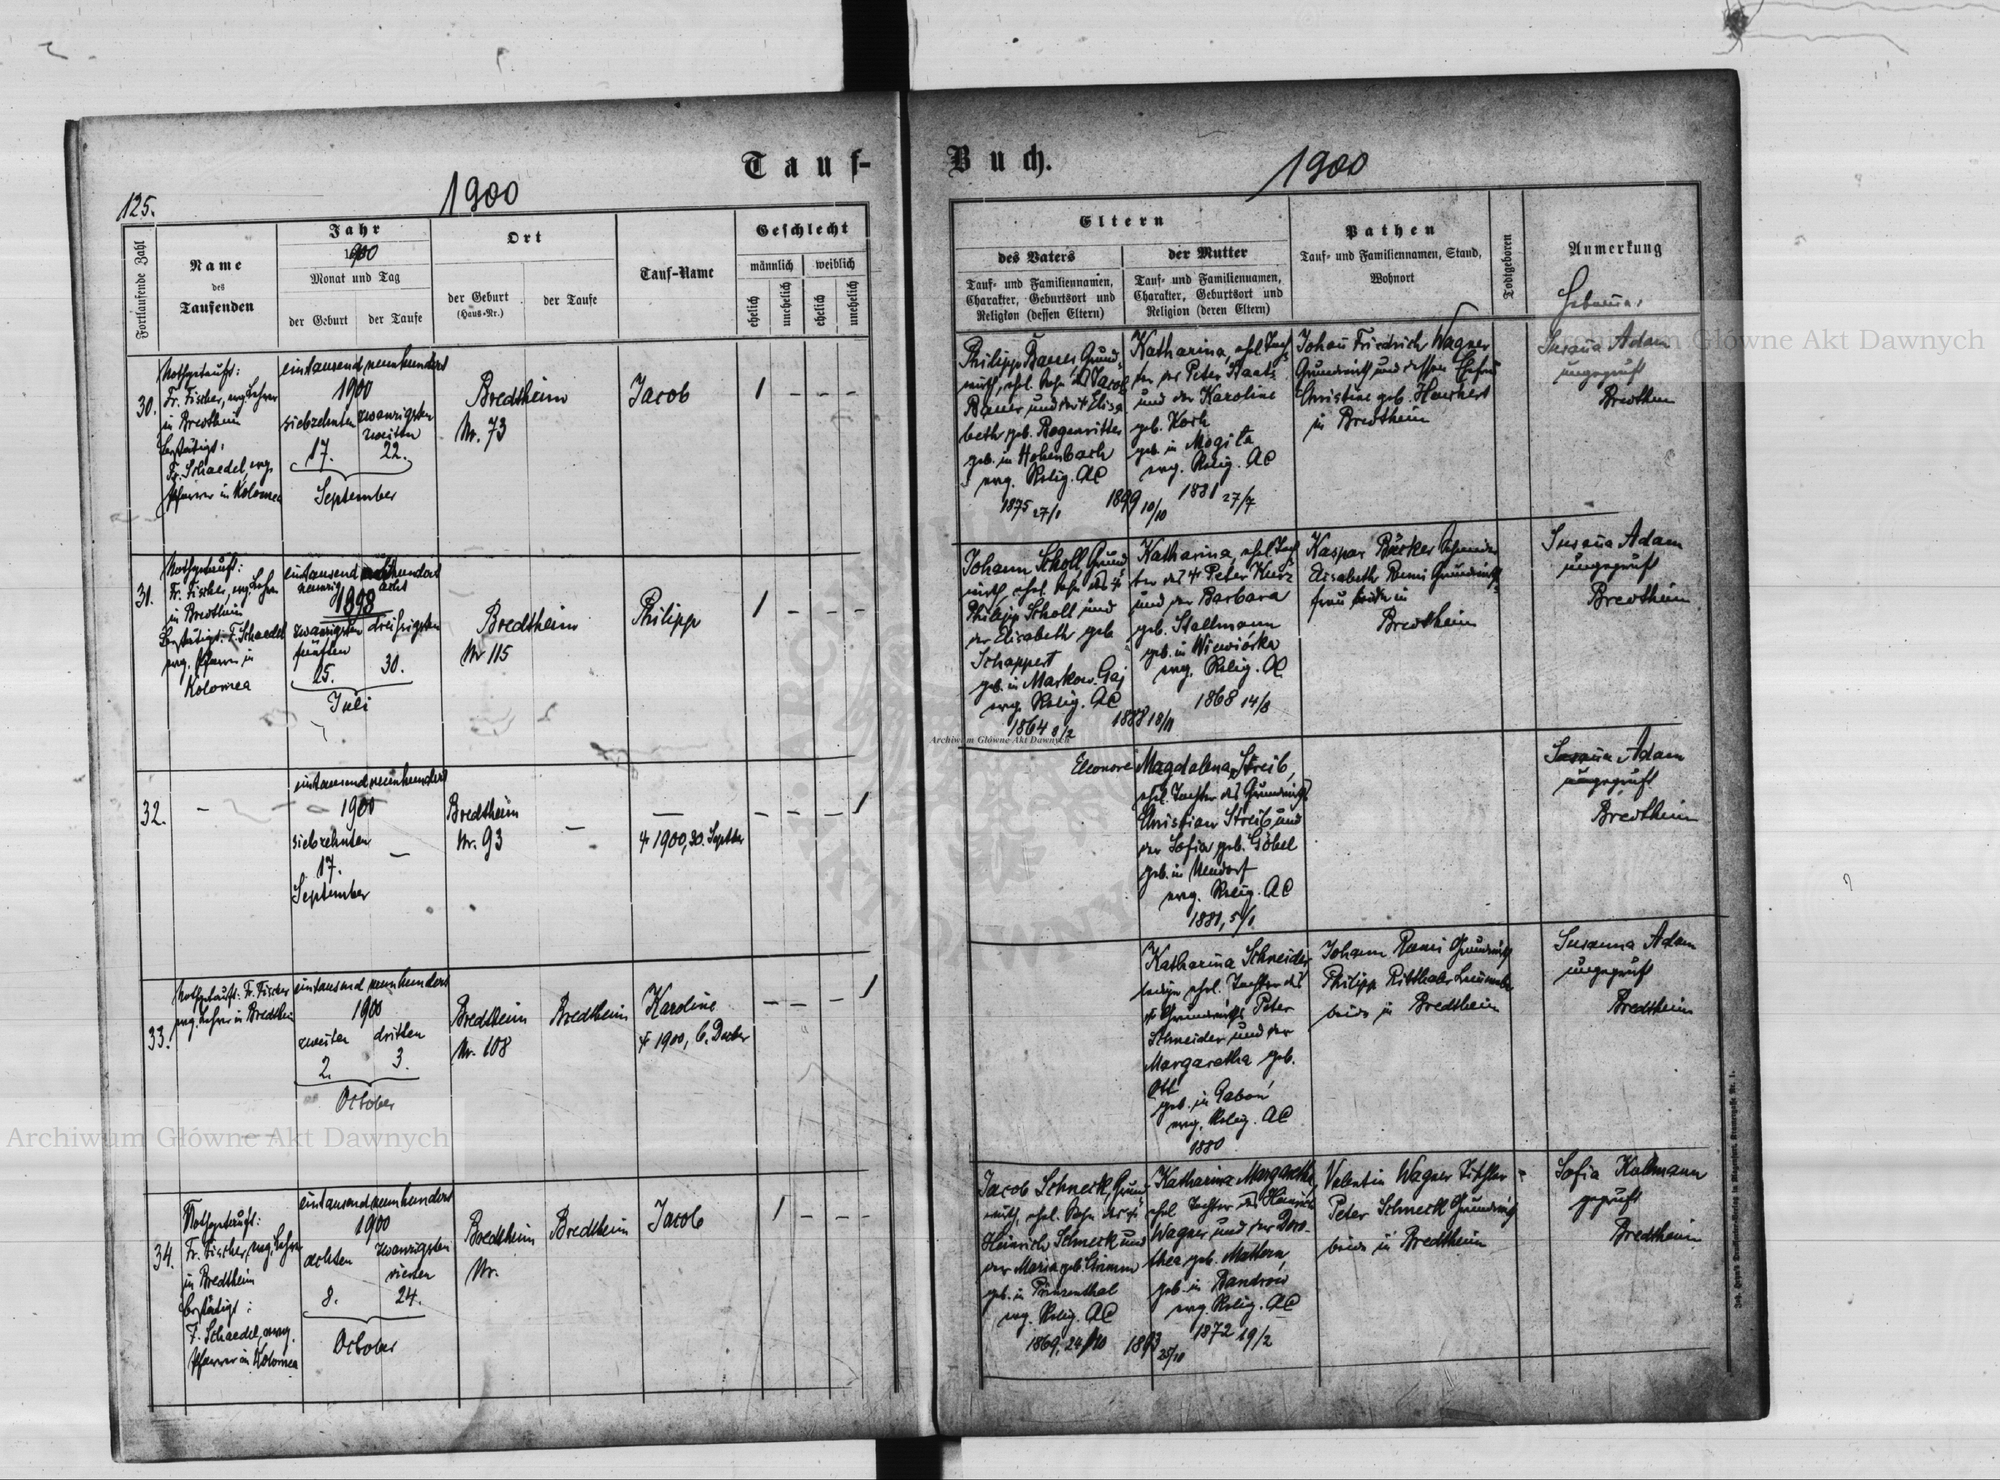 Tauf-
Buch.
1900
1900
125.
Fortlaufende Zahl
Name
des
Taufenden
Jahr
1900
Monat und Tag
der Geburt
der Taufe
Ort
der Geburt
(Haus-Nr.)
der Taufe
Tauf-Name
Geschlecht
männlich
weiblich
ehelich
unehelich
ehelich
unehelich
Eltern
des Vaters
Tauf- und Familiennamen,
Charakter, Geburtsort und
Religion (dessen Eltern)
der Mutter
Tauf- und Familiennamen,
Charakter, Geburtsort und
Religion (deren Eltern)
Pathen
Tauf- und Familiennamen, Stand,
Wohnort
Todtgeboren
Anmerkung
30.
Nothgetauft:
Fr. Fischer, evg. Lehrer
in Bredtheim
Bestätigt:
Fr. Schaedel, evg.
Pfarrer in Kolomea
eintausend neunhundert
1900
siebzehnten
zwanzigsten
zweiten
17.
22.
September
Bredtheim
Nr. 73
Jacob
1 - - -
Philipp Bauer, Grund-
wirth, ehel. Sohn des Jacob
Bauer und der Elisa
beth geb. Regenritter
geb. in Hohenbach
evg. Relig. AC
1875 27/1
1899 10/10
Katharina, ehel. Toch
ter des Peter Staatz
und der Karoline
geb. Koch
geb. in Mogiła
evg. Relig. AC
1881 27/7
Johan Friedrich Wagner
Grundwirth und dessen Ehefrau
Christine geb.
in Bredtheim
Susana Adam
ungeprüft
Bredtheim
31.
Nothgetauft:
Fr. Fischer, evg. Lehrer
in Bredtheim
Bestätigt: F. Schaedel
evg. Pfarrer in
Kolomea
eintausend achthundert
neunzig acht
1898
zwanzigsten
fünften
dreissigsten
25.
30.
Juli
Bredtheim
Nr 115
Philipp
1 - - -
Johann Scholl, Grund
wirth, ehel. Sohn des †
Philipp Scholl und
der Elisabeth geb
Schappert
geb. in Markow. Gaj
evg. Relig. AC
1864 8/2
1888 18/11
Katharina, ehel. Toch
ter des † Peter Kurz
und der Barbara
geb. Stallmann
geb. in Wiewiórka
evg. Relig. AC
1868 14/8
Kaspar Bücker
Elisabeth Remi Grundwirths
frau beide in
Bredtheim
Susana Adam
ungeprüft
Bredtheim
32.
-
eintausend neunhundert
1900
siebzehnten
17.
September
-
Bredtheim
Nr. 93
-
-
† 1900, 30. Septber
- - - 1
Eleonore Magdalena Streib,
ehel. Tochter des Grundwirths
Christian Streib und
der Sofia geb. Göbel
geb. in Neudorf
evg. Relig. AC
1881, 5/1
Susana Adam
ungeprüft
Bredtheim
33.
Nothgetauft: Fr. Fischer
evg. Lehrer in Bredtheim
eintausend neunhundert
1900
zweiten
dritten
2.
3.
October
Bredtheim
Nr. 108
Bredtheim
Karoline
† 1900, 6. Decber
- - - 1
Katharina Schneider
ledige ehel. Tochter des
† Grundwirths Peter
Schneider und der
Margaretha geb.
Ott
geb. in Gaboń
evg. Relig. AC
1880
Johann Remi Grundwirth
Philipp Ritthaler
beide in Bredtheim
Susanna Adam
ungeprüft
Bredtheim
34.
Nothgetauft:
Fr. Fischer, evg. Lehrer
in Bredtheim
Bestätigt:
F. Schaedel, evg.
Pfarrer in Kolomea
eintausend neunhundert
1900
achten
zwanzigsten
vierten
8.
24.
October
Bredtheim
Nr.
Bredtheim
Jacob
1 - - -
Jacob Schneck, Grund
wirth, ehel. Sohn des †
Heinrich Schneck und
der Maria geb. Grimm
geb. in Prinzenthal
evg. Relig. AC
1869, 24/10
1893 25/10
Katharina Margaretha
ehel. Tochter des Heinrich
Wagner und der Doro-
thea geb. Mattern
geb. in Bandrów
evg. Relig. AC
1872 19/2
Valentin Wagner Tischler
Peter Schneck Grundwirth
beide in Bredtheim
Sofia Kallmann
geprüft
Bredtheim
Archiwum Główne Akt Dawnych
Archiwum Główne Akt Dawnych
Archiwum Główne Akt Dawnych